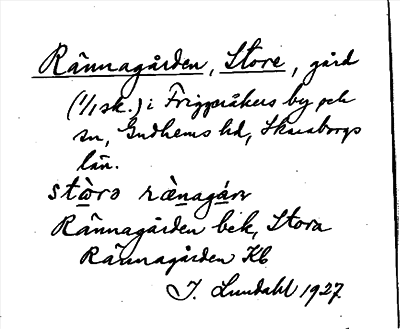 Rännagården, Store, gård
(1/1 sk.) i Friggeråkers by och
sn, Gudhems hd, Skaraborgs
län.
stòrə rænagárn
Rännagården bek, Stora
Rännagården Kb
J. Lundahl 1927